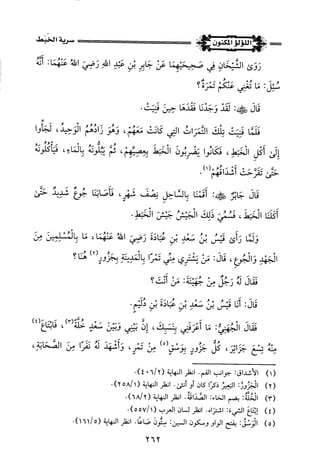 اللؤلؤ المكنون
سرية الخبط
رَوَى الشَّيْخَانِ فِي صَحِيحَيْهِمَا عَنْ جَابِرِ بْنِ عَبْدِ اللهِ رَضِيَ اللهُ عَنْهُمَا: أَنَّهُ
سُئِلَ: مَا تُغْنِي عَنْكُمْ تَمْرَةٌ؟
قَالَ: لَقَدْ وَجَدْنَا فَقْدَهَا حِينَ فَنِيَتْ.
فَلَمَّا فَنِيَتْ تِلْكَ التَّمَرَاتُ التِي كَانَتْ مَعَهُمْ، وَهُوَ زَادُهُمُ الْوَحِيدُ، لَجَأُوا
إِلَى أَكْلِ الْخَبَطِ، فَكَانُوا يَضْرِبُونَ الْخَبَطَ بِعِصِيِّهِمْ، ثُمَّ يَبُلُّونَهُ بِالْمَاءِ، فَيَأْكُلُونَهُ
حَتَّى تَقَرَّحَتْ أَشْدَاقُهُمْ(١).
قَالَ جَابِرٌ: أَقَمْنَا بِالسَّاحِلِ نِصْفَ شَهْرٍ، فَأَصَابَنَا جُوعٌ شَدِيدٌ حَتَّى
أَكَلْنَا الْخَبَطَ، فَسُمِّيَ ذَلِكَ الْجَيْشُ جَيْشَ الْخَبَطِ.
وَلَمَّا رَأَى قَيْسُ بْنُ سَعْدِ بْنِ عُبَادَةَ رَضِيَ اللهُ عَنْهُمَا، مَا بِالْمُسْلِمِينَ مِنَ
الْجَهْدِ وَالْجُوعِ، قَالَ: مَنْ يَشْتَرِي مِنِّي تَمْرًا بِالْمَدِينَةِ بِجَزُورٍ(٢) هُنَا؟
فَقَالَ لَهُ رَجُلٌ مِنْ جُهَيْنَةَ: مَنْ أَنْتَ؟
قَالَ: أَنَا قَيْسُ بْنُ سَعْدِ بْنِ عُبَادَةَ بْنِ دُلَيْمٍ.
فَقَالَ الْجُهَنِيُّ: مَا أَعْرَفَنِي بِنَسَبِكَ، إِنَّ بَيْنِي وَبَيْنَ سَعْدٍ خُلَّةً(٣)، فَابْتَاعَ(٤)
مِنْهُ تِسْعَ جَزَائِرَ، كُلُّ جَزُورٍ بِوَسْقٍ(٥) مِنْ تَمْرٍ، وَأَشْهَدَ لَهُ نَفَرًا مِنَ الصَّحَابَةِ،
(١) الأشداق: جوانب الفم. انظر النهاية (٤٠٦/٢).
(٢) الْجَزُورُ: البَعِيرُ ذكرًا كان أو أنثى. انظر النهاية (٢٥٨/١).
(٣) الْخُلَّةُ: بضم الخاء: الصَّدَاقَةُ. انظر النهاية (٦٨/٢).
(٤) إبْتَاعَ الشيءَ: اشتراه. انظر لسان العرب (٥٥٧/١).
(٥) الْوَسْقُ: بفتح الواو وسكون السين: سِتُّونَ صَاعًا. انظر النهاية (١٦١/٥).
٢٦٢